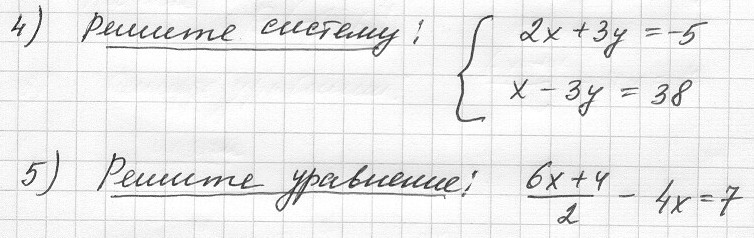 4) Решите систему: { 2x + 3y = -5
x - 3y = 38
5) Решите уравнение: (6x + 4)/2 - 4x = 7